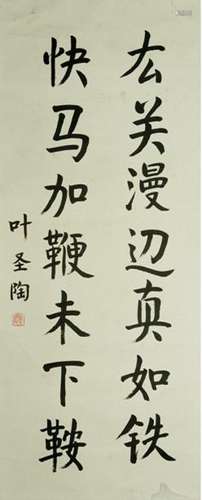 厷关漫辺真如铁
快马加鞭未下鞍
叶圣陶